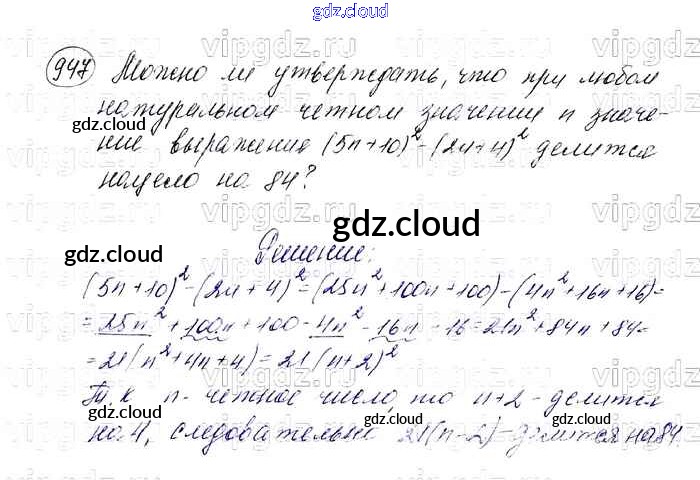 gdz.cloud
947 Можно ли утверждать, что при любом
натуральном четном значении n значе-
ние выражения (5n+10)² - (2n+4)² делится
нацело на 84?
gdz.cloud
gdz.cloud
gdz.cloud
gdz.cloud
Решение:
(5n+10)² - (2n+4)² = (25n² + 100n + 100) - (4n² + 16n + 16) =
= 25n² + 100n + 100 - 4n² - 16n - 16 = 21n² + 84n + 84 =
= 21(n² + 4n + 4) = 21(n+2)²
Т.к n - четное число, то n+2 - делится
на 4, следовательно 21(n-2) - делится на 84.
gdz.cloud
gdz.cloud
gdz.cloud